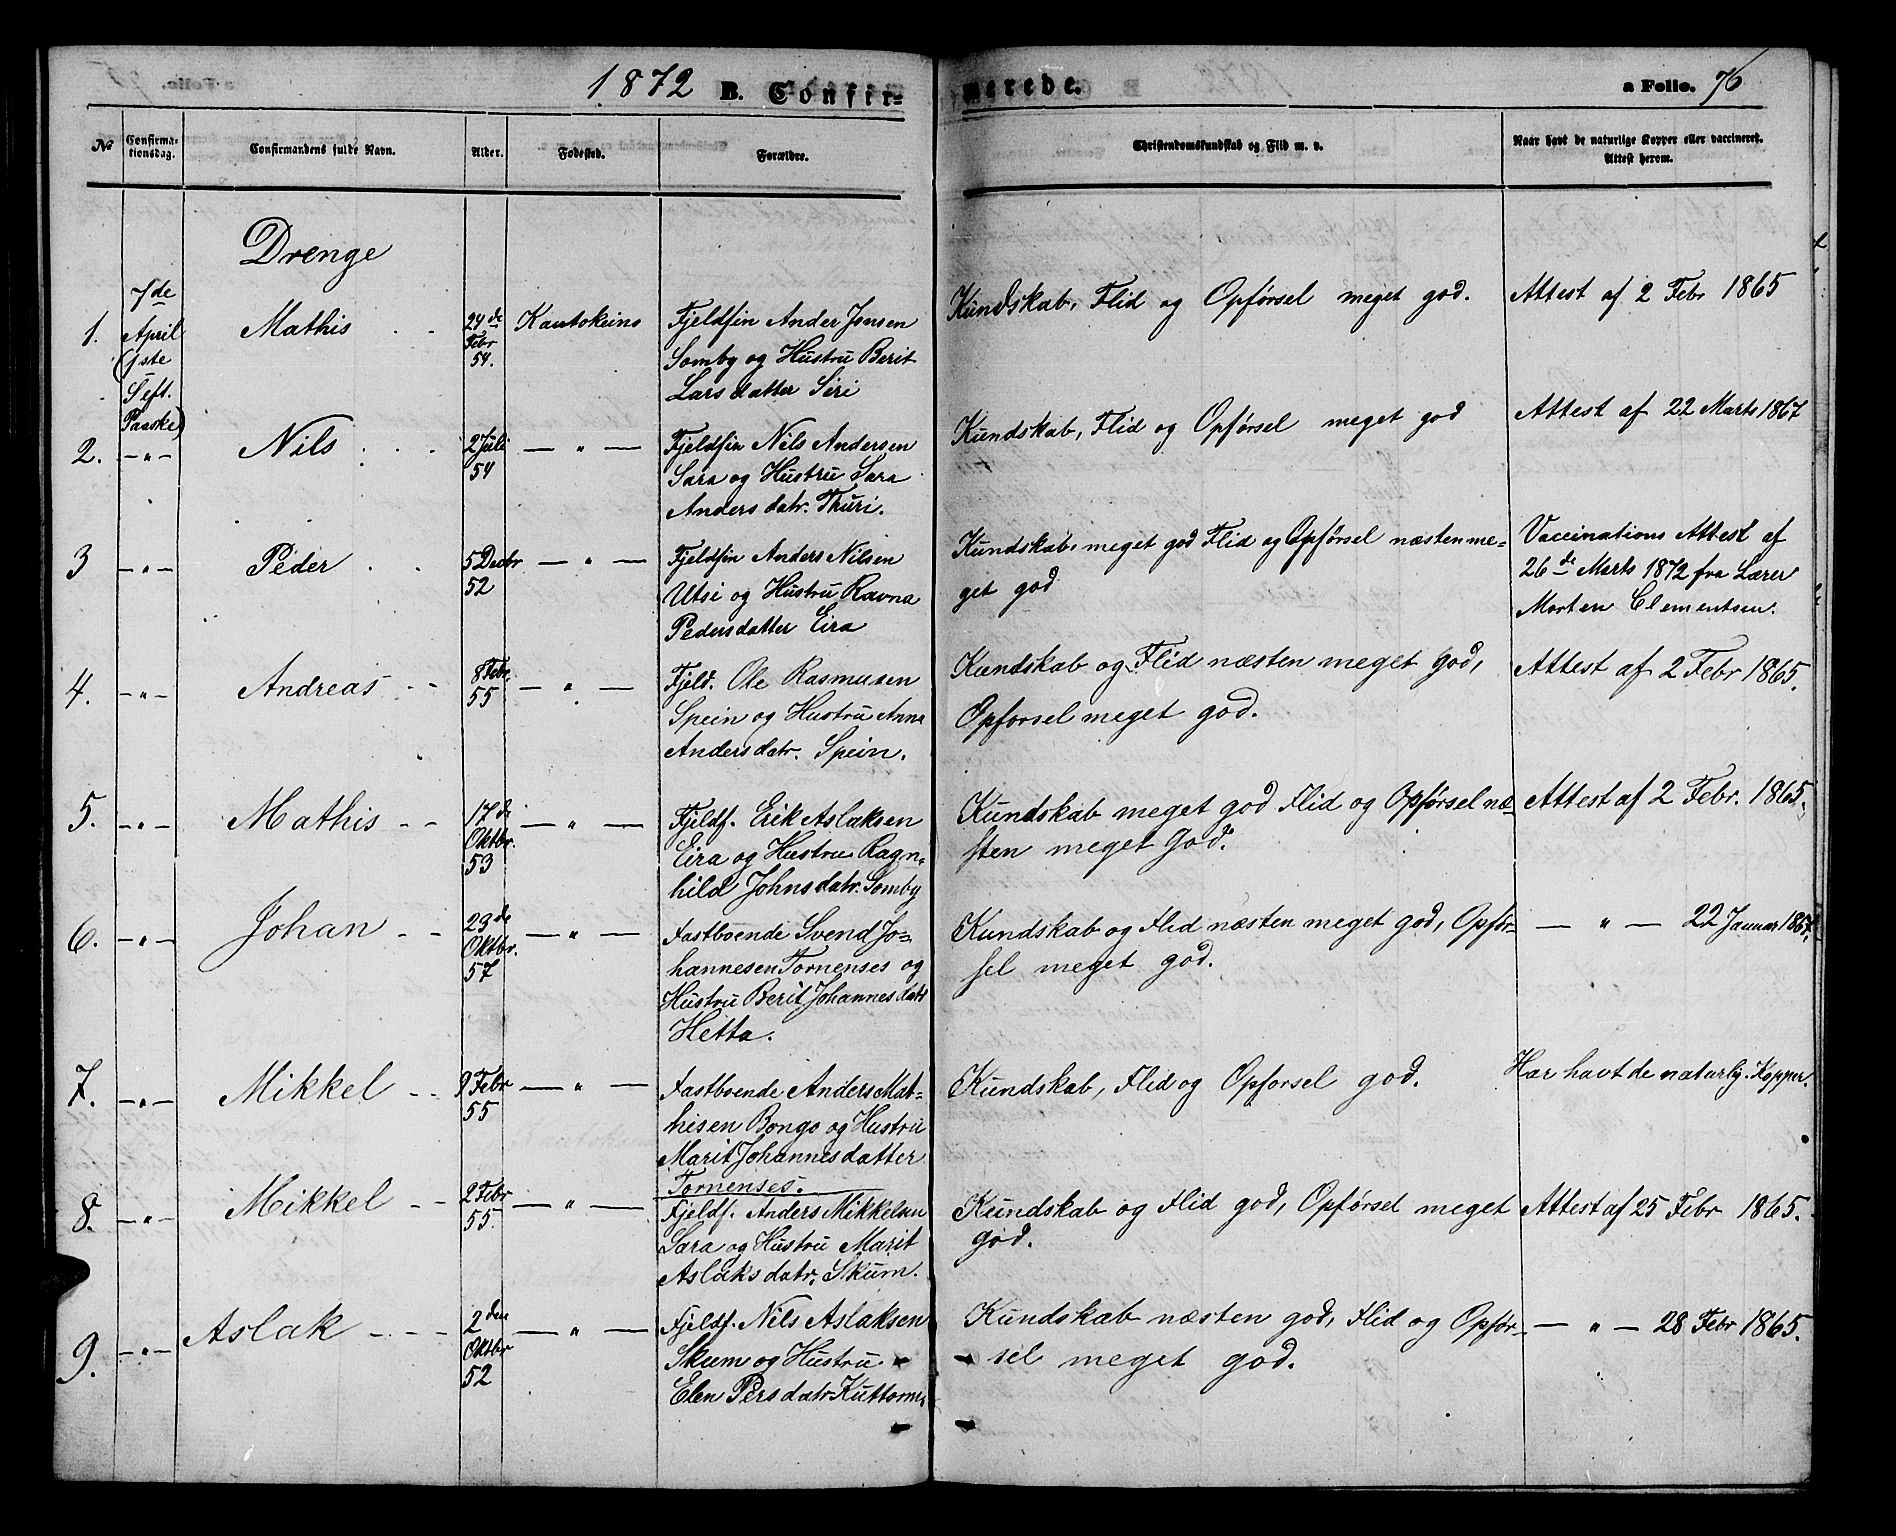 1872 B. Confirmerede. a Folio. 76
№ Confirmationsdag. Confirmandens fulde Navn. Alder. Fødested. Forældre. Christendomskundskab og Flid m. v. Naar havt de naturlige Kopper eller vaccineret. Attest herom.
Drenge
1. 7de April (1ste Søft. Paaske) Mathis 24de Febr 54. Kautokeino
Fjeldfin Ander Jonsen
Somby og Hustru Berit
Larsdatter Siri
Kundskab, Flid og Opførsel meget god.
Attest af 2 Febr 1865
2. —„— Nils 2 Juli 54 — „ —
Fjeldfin Nils Andersen
Sara og Hustru Sara
Andersdatr. Thuri.
Kundskab, Flid og Opførsel meget god
Attest af 22 Marts 1867
3 —„— Peder 5 Decbr 52 — „ —
Fjeldfin Anders Nilsen
Utsi og Hustru Ravna
Pedersdatter Eira
Kundskab, meget god Flid og Opførsel næsten me-
get god
Vaccinations Attest af
26de Marts 1872 fra Lærer
Morten Clementsen.
4. —„— Andreas 8 Febr. 55 — „ —
Fjeld. Ole Rasmusen
Spein og Hustru Anna
Andersdatr. Spein.
Kundskab og Flid næsten meget god,
Opforsel meget god.
Attest af 2 Febr 1865.
5. —„— Mathis 17de Oktbr. 53 — „ —
Fjeldf. Erik Aslaksen
Eira og Hustru Ragn-
hild Johnsdatr. Somby
Kundskab meget god Flid og Opførsel næ-
sten meget god.
Attest af 2 Febr. 1865.
6. —„— Johan 23de Oktbr. 57 — „ —
Fastboende Svend Jo-
hannesen Tornenses og
Hustru Berit Johannesdatr
Hetta.
Kundskab og Flid næsten meget god, Opfør-
sel meget god.
— „ — 22 Januar 1867.
7. —„— Mikkel 9 Febr 55 — „ —
Fastboende Anders Mat-
hisen Bongo og Hustru
Marit Johannesdatter
Tornenses.
Kundskab, Flid og Opforsel god.
Har havt de naturlig. Kopper.
8. —„— Mikkel 2 Febr 55. — „ —
Fjeldf. Anders Mikkelsen
Sara og Hustru Marit
Aslaksdatr. Skum.
Kundskab og Flid god, Opførsel meget
god.
Attest af 25 Febr 1865.
9. —„— Aslak 2den Oktbr 52 — „ —
Fjeldf. Nils Aslaksen
Skum og Hustru
Elen Persdatr Kuttorne
Kundskab næsten god, Flid og Opfør-
sel meget god.
— „ — 28 Febr 1865.